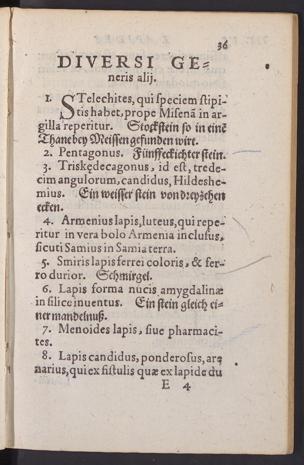 36
DIVERSI GE-
neris alij.
1. STelechites, qui speciem stipi-
tis habet, prope Misenā in ar-
gilla reperitur. Stockstein so in einē
Thane bey Meissen gefunden wirt.
2. Pentagonus. Fünffeckichter stein.
3. Triskędecagonus, id est, trede-
cim angulorum, candidus, Hildeshe-
mius. Ein weisser stein von dreyzehen
ecken.
4. Armenius lapis, luteus, qui repe-
ritur in vera bolo Armenia inclusus,
sicuti Samius in Samia terra.
5. Smiris lapis ferrei coloris, & fer-
ro durior. Schmirgel.
6. Lapis forma nucis amygdalinæ
in silice inuentus. Ein stein gleich ei-
ner mandelnuß.
7. Menoides lapis, siue pharmaci-
tes.
8. Lapis candidus, ponderosus, are
narius, qui ex fistulis quæ ex lapide du
E 4